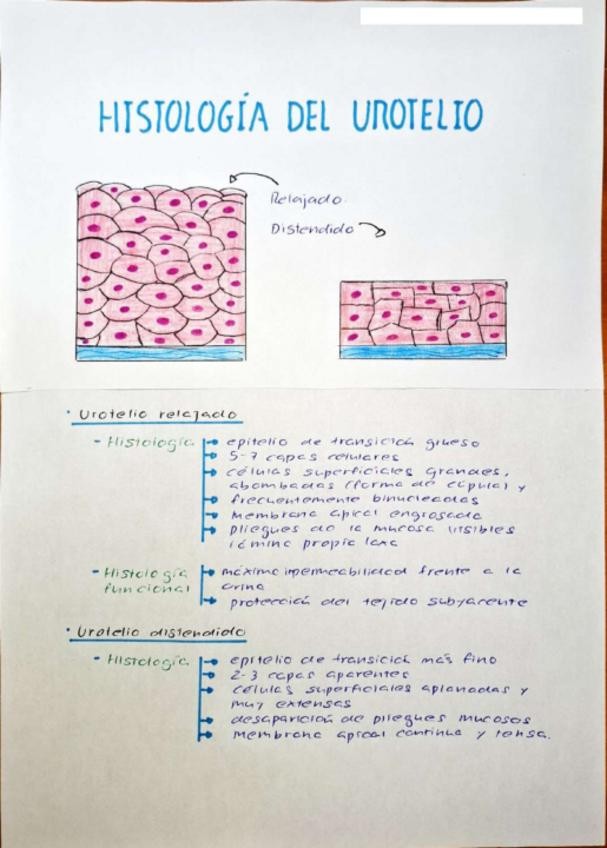 HISTOLOGÍA DEL UROTELIO
Relajado.
Distendido
· Urotelio relajado
- Histología
epitelio de transición grueso
5-7 capas celulares
células superficiales grandes,
abombadas (forma de cúpula) y
frecuentemente binucleadas
membrana apical engrosada
pliegues de la mucosa visibles
lámina propia laxa
- Histología
funcional
máxima impermeabilidad frente a la
orina
protección del tejido subyacente
· Urotelio distendido
- Histología
epitelio de transición más fino
2-3 capas aparentes
células superficiales aplanadas y
muy extensas
desaparición de pliegues mucosos
membrana apical continua y tensa.